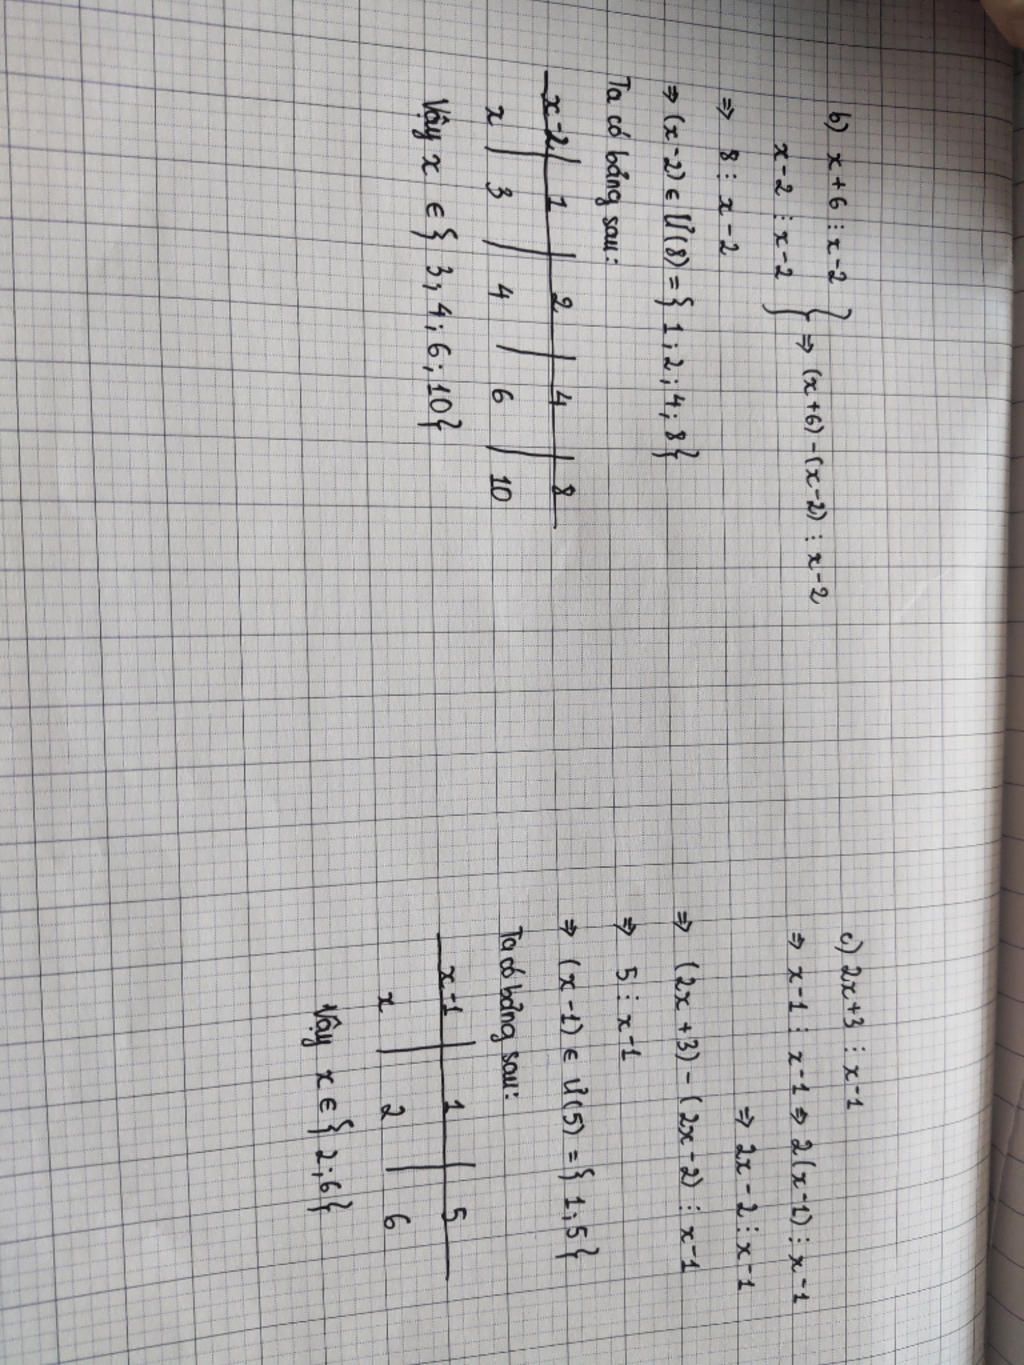 b) x+6 ⋮ x-2
x-2 ⋮ x-2 } ⇒ (x+6) - (x-2) ⋮ x-2
⇒ 8 ⋮ x-2
⇒ (x-2) ∈ Ư(8) = { 1; 2; 4; 8}
Ta có bảng sau:
x-2 | 1 | 2 | 4 | 8
x | 3 | 4 | 6 | 10
Vậy x ∈ { 3; 4; 6; 10}
c) 2x+3 ⋮ x-1
⇒ x-1 ⋮ x-1 ⇒ 2(x-1) ⋮ x-1
⇒ 2x-2 ⋮ x-1
⇒ (2x+3) - (2x-2) ⋮ x-1
⇒ 5 ⋮ x-1
⇒ (x-1) ∈ Ư(5) = { 1; 5}
Ta có bảng sau:
x-1 | 1 | 5
x | 2 | 6
Vậy x ∈ { 2; 6}